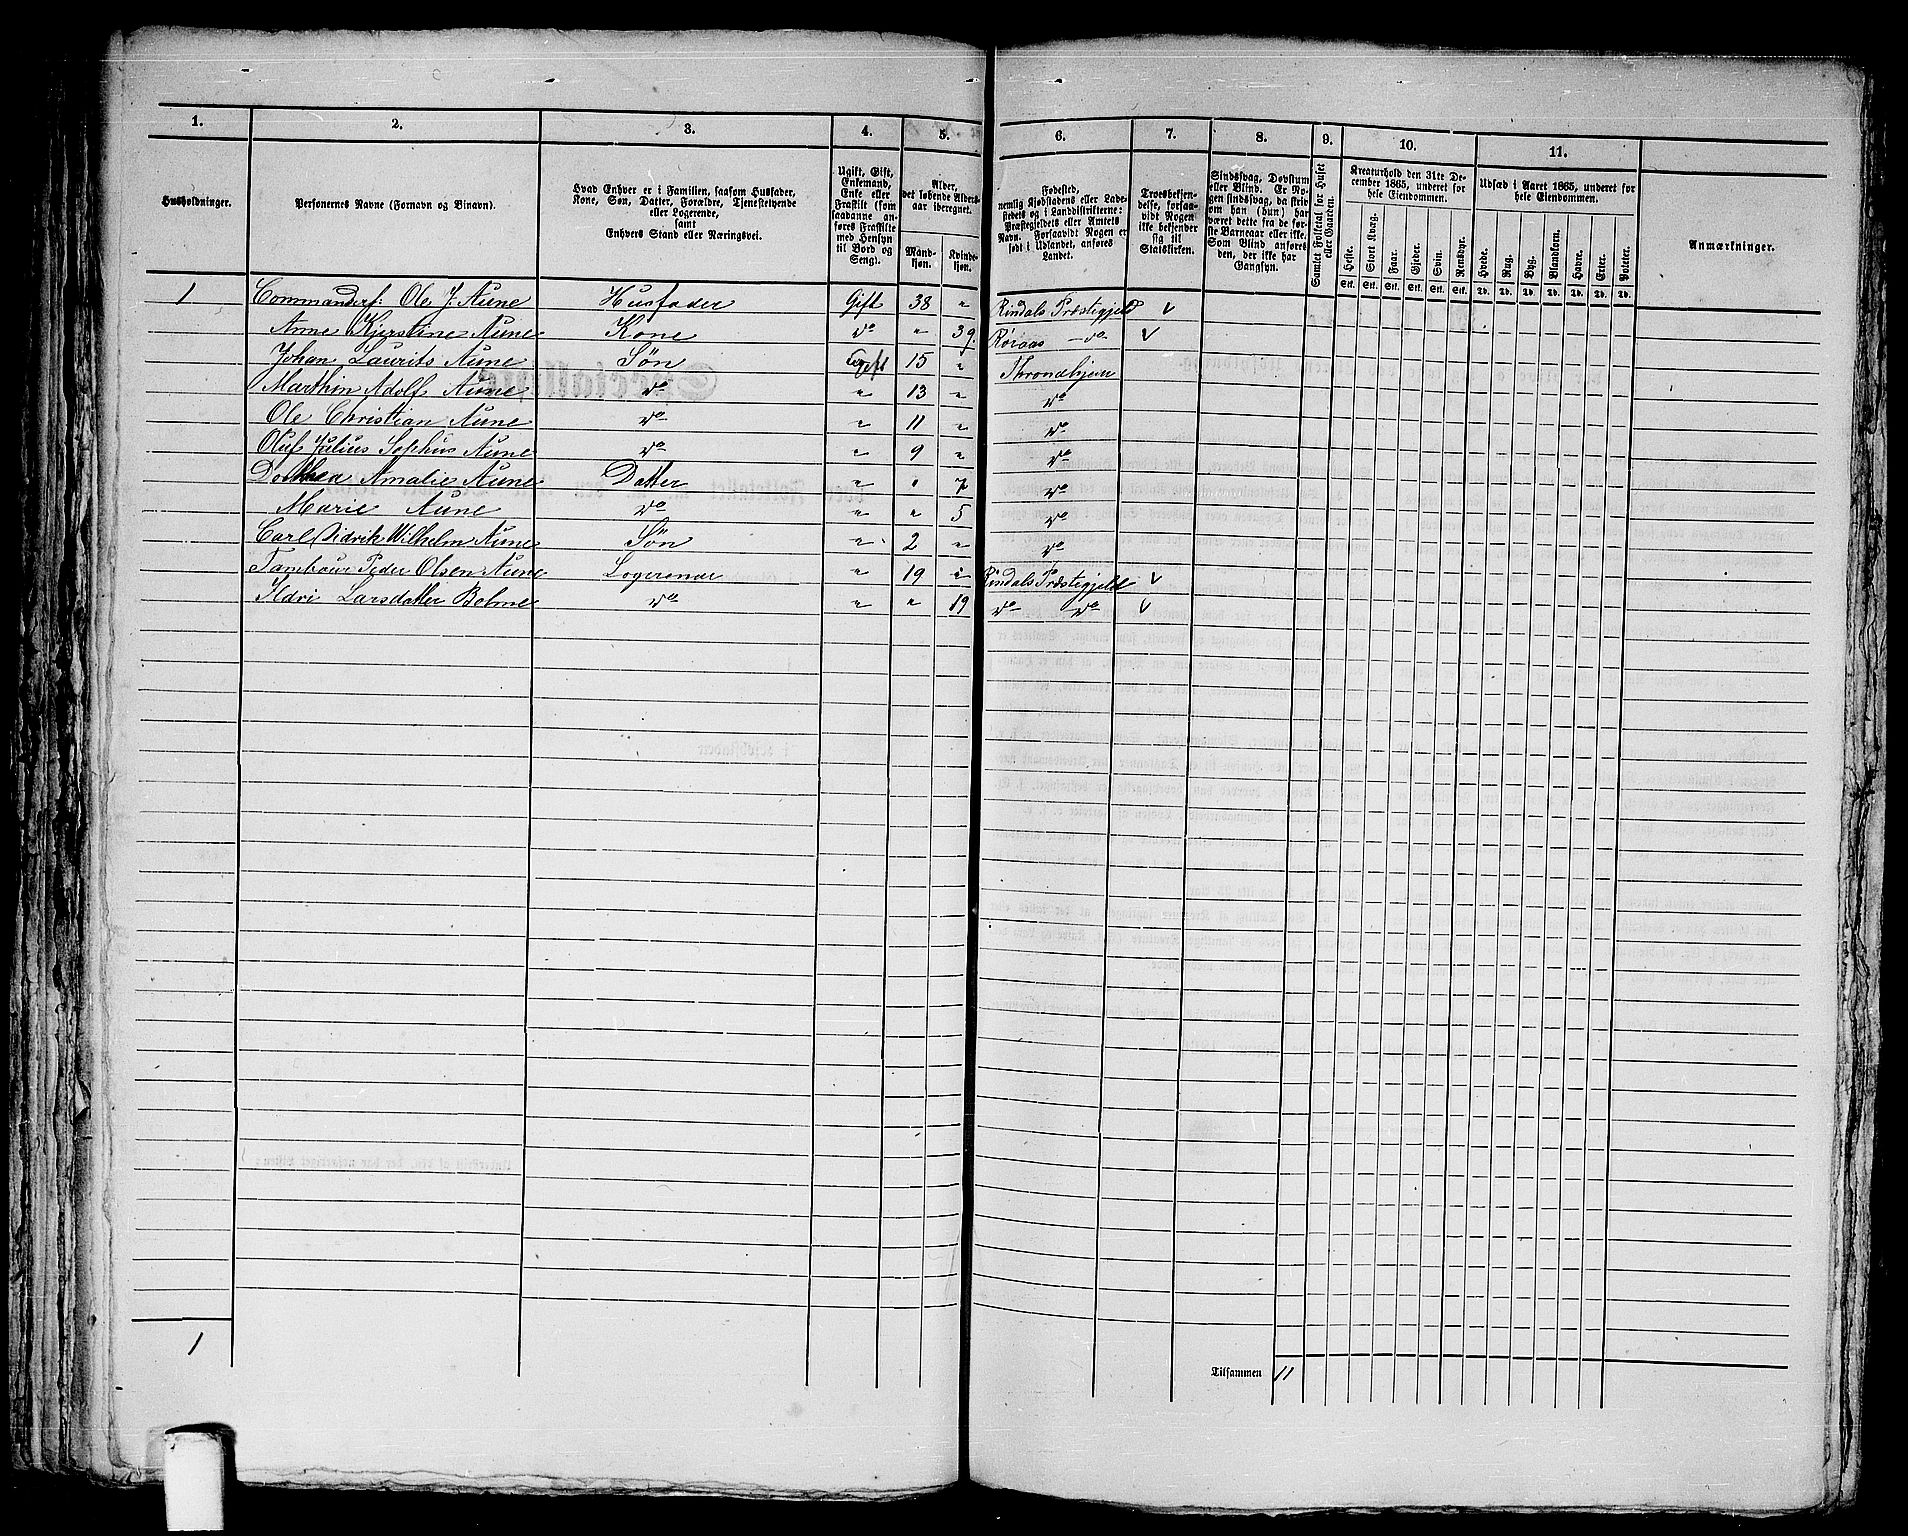 1. 2. 3. 4. 5. 6. 7. 8. 9. 10. 11.
Husholdninger.
Personernes Navne (Fornavn og Binavn).
Hvad Enhver er i Familien, saasom Husfader,
Kone, Søn, Datter, Forældre, Tjenestetyende
eller Logerende,
samt
Enhvers Stand eller Næringsvei.
Ugift, Gift,
Enkemand,
Enke eller
Fraskilt (som
saadanne an-
føres Fraskilte
med Hensyn
til Bord og
Seng).
Alder,
det løbende Alders-
aar iberegnet.
Mand-
kjøn.
Kvinde-
kjøn.
Fødested,
nemlig Kjøbstadens eller Lade-
stedets og i Landdistrikterne:
Præstegjeldets eller Amtets
Navn. Forsaavidt Nogen er
født i Udlandet, anføres
Landet.
Troesbekjen-
delse, forsaa-
vidt Nogen
ikke bekjender
sig til
Statskirken.
Sindssvag, Døvstum
eller Blind. Er No-
gen sindssvag, da skriv
om han (hun) har
været dette fra de før-
ste Barneaar eller ikke.
Som Blind anføres
den, der ikke har
Gangsyn.
Samlet Folketal for Huset
eller Gaarden.
Kreaturhold den 31te De-
cember 1865, underet for
hele Eiendommen.
Heste. Stort Kvæg. Faar. Gjeder. Svin. Rensdyr.
Stk. Stk. Stk. Stk. Stk. Stk.
Udsæd i Aaret 1865, underet for
hele Eiendommen.
Hvede. Rug. Byg. Blandkorn. Havre. Erter. Poteter.
Td. Td. Td. Td. Td. Td. Td.
Anmærkninger.
1 Ole J. Aune Husfader Gift 38 " Rindals Præstigjeld v
Anne Kjerstine Aune Kone do " 39. Røraas - do v
Johan Laurits Aune Søn Ugift 15 " Thronhjem
Marthin Adolf Aune do " 13 " do
Ole Christian Aune do " 11 " do
Oluf Julius Sophus Aune do " 9 " do
Dorthea Amalie Aune Datter " " 7 do
Marie Aune do " " 5 do
Carl Didrik Wilhelm Aune Søn " 2 " do
Tambour Peder Olsen Aune Logerende " 19 " Rindals Præstigjeld v
Ildri Larsdatter Bolme do " " 19 do do v
1
Tilsammen 11